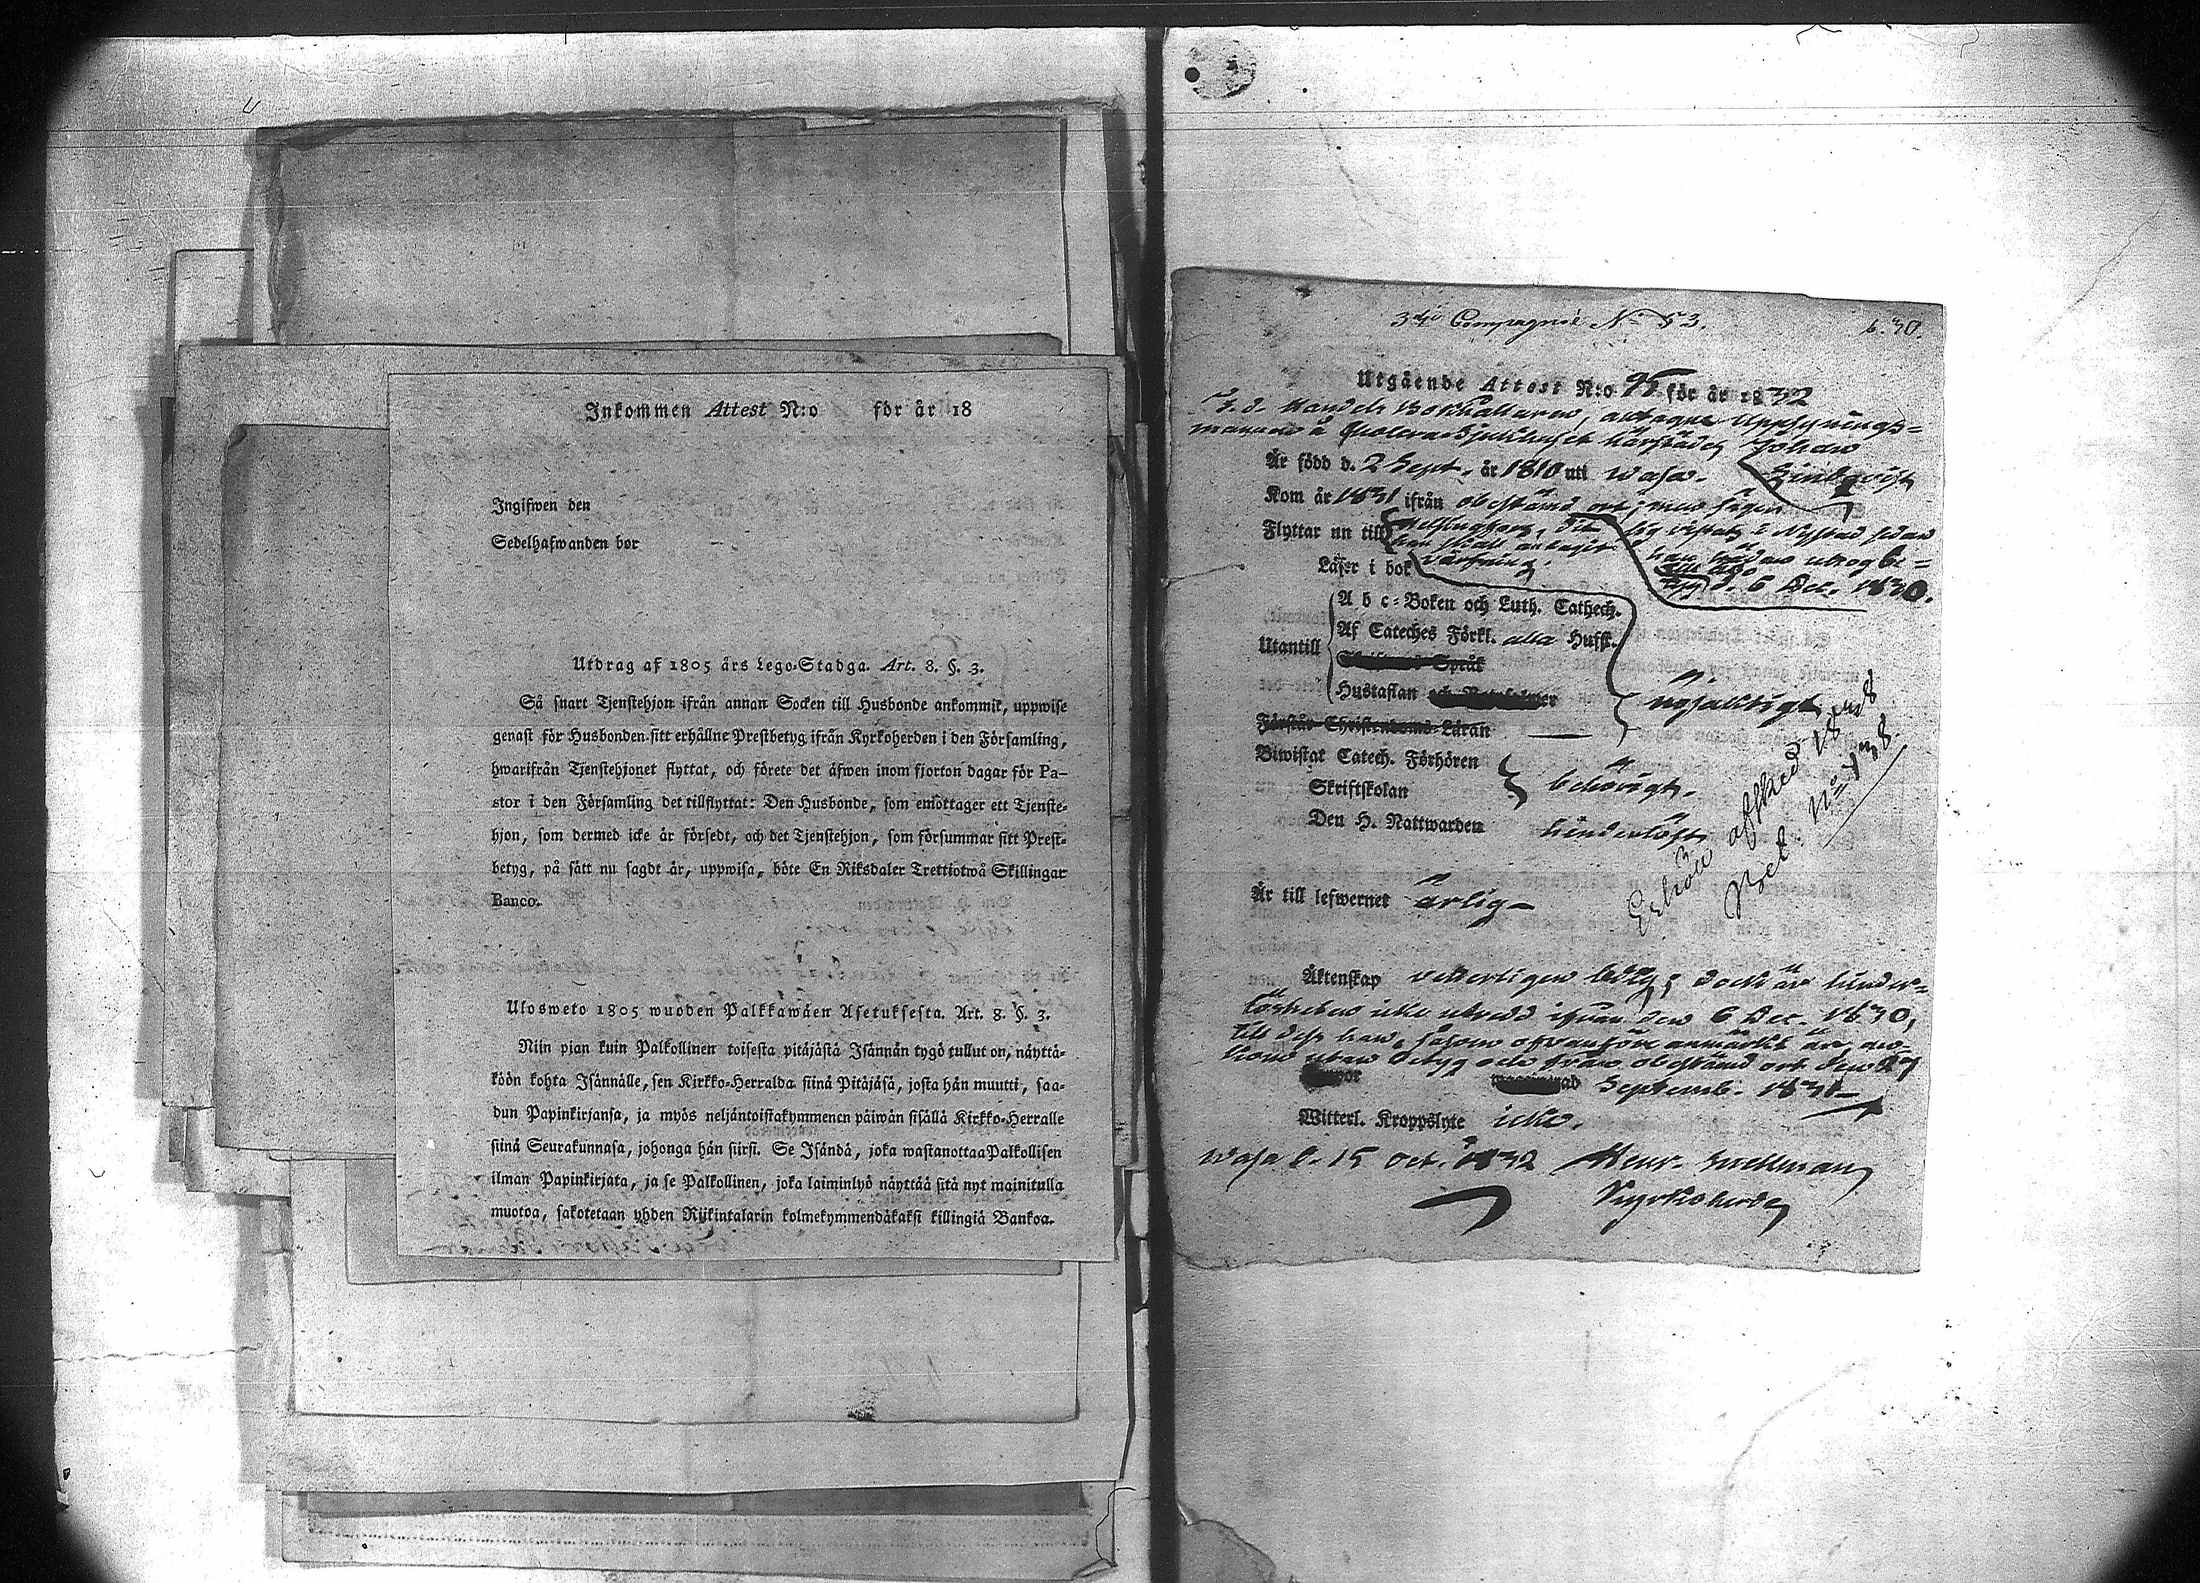 Inkommen Attest N:o för år 18
Ingifwen den
Sedelhafwanden bor
Utdrag af 1805 års Lego-Stadga. Art. 8. §. 3.
Så snart Tjenstehjon ifrån annan Socken till Husbonde ankommit, uppwise
genast för Husbonden sitt erhållne Prestbetyg ifrån Kyrkoherden i den Församling,
hwarifrån Tjenstehjonet flyttat, och förete det äfwen inom fjorton dagar för Pa-
stor i den Församling det tillflyttat: Den Husbonde, som emottager ett Tjenste-
hjon, som dermed icke är försedt, och det Tjenstehjon, som försummar sitt Prest-
betyg, på sätt nu sagdt är, uppwisa, böte En Riksdaler Trettiotwå Skillingar
Banco.
Ulosweto 1805 wuoden Palkkawäen Asetuksesta. Art. 8. §. 3.
Niin pian kuin Palkollinen toisesta pitäjästä Isännän tygö tullut on, näyttä-
köön kohta Isännälle, sen Kirkko-Herralda siinä Pitäjäsä, josta hän muutti, saa-
dun Papinkirjansa, ja myös neljäntoistakymmenen päiwän sisällä Kirkko-Herralle
siinä Seurakunnasa, johonga hän siirsi. Se Isändä, joka wastanottaa Palkollisen
ilman Papinkirjata, ja se Palkollinen, joka laiminlyö näyttää sitä nyt mainitulla
muotoa, sakotetaan yhden Rijkintalarin kolmekymmendäkaksi killingiä Bankoa.
3dje Compagnie No 53. 6.30.
Utgående Attest N:o 95 för år 1832
F. d. Handels Bokhållaren, antagne Uppsynings-
mannen å Cholera Sjukhuset härstädes Johan
Är född d. 2 Sept. år 1810 uti Wasa. Lindqvist
Kom år 1831 ifrån obestämd ort; men säger
Flyttar nu till Helsingfors, der sig vistats i Nystad sedan
han skall antagit han uttog be-
Läser i bok värfning.
tyg d. 6 Dec. 1830.
A b c-Boken och Luth. Cathech.
Af Cateches Förkl. alla Hufst.
Utantill
Språk
Hustaflan
nöjaktigt
Förstår Christendoms-Läran
Biwistat Catech. Förhören
Skriftskolan behörigt.
Den H. Nattwarden
Erhöll afsked 18
Bet. No 138.
Är till lefwernet ärlig
Äktenskap vetterligen ledig; dock är hinder-
lösheten icke utredd ifrån den 6 Dec. 1830,
till dess han, såsom ofvanföre anmärkt är, an-
kom utan betyg och från obestämd ort den 27
Septemb. 1831
Witterl. Kroppslyte icke.
Wasa d. 15 Oct. 1832
Kyrkoherde